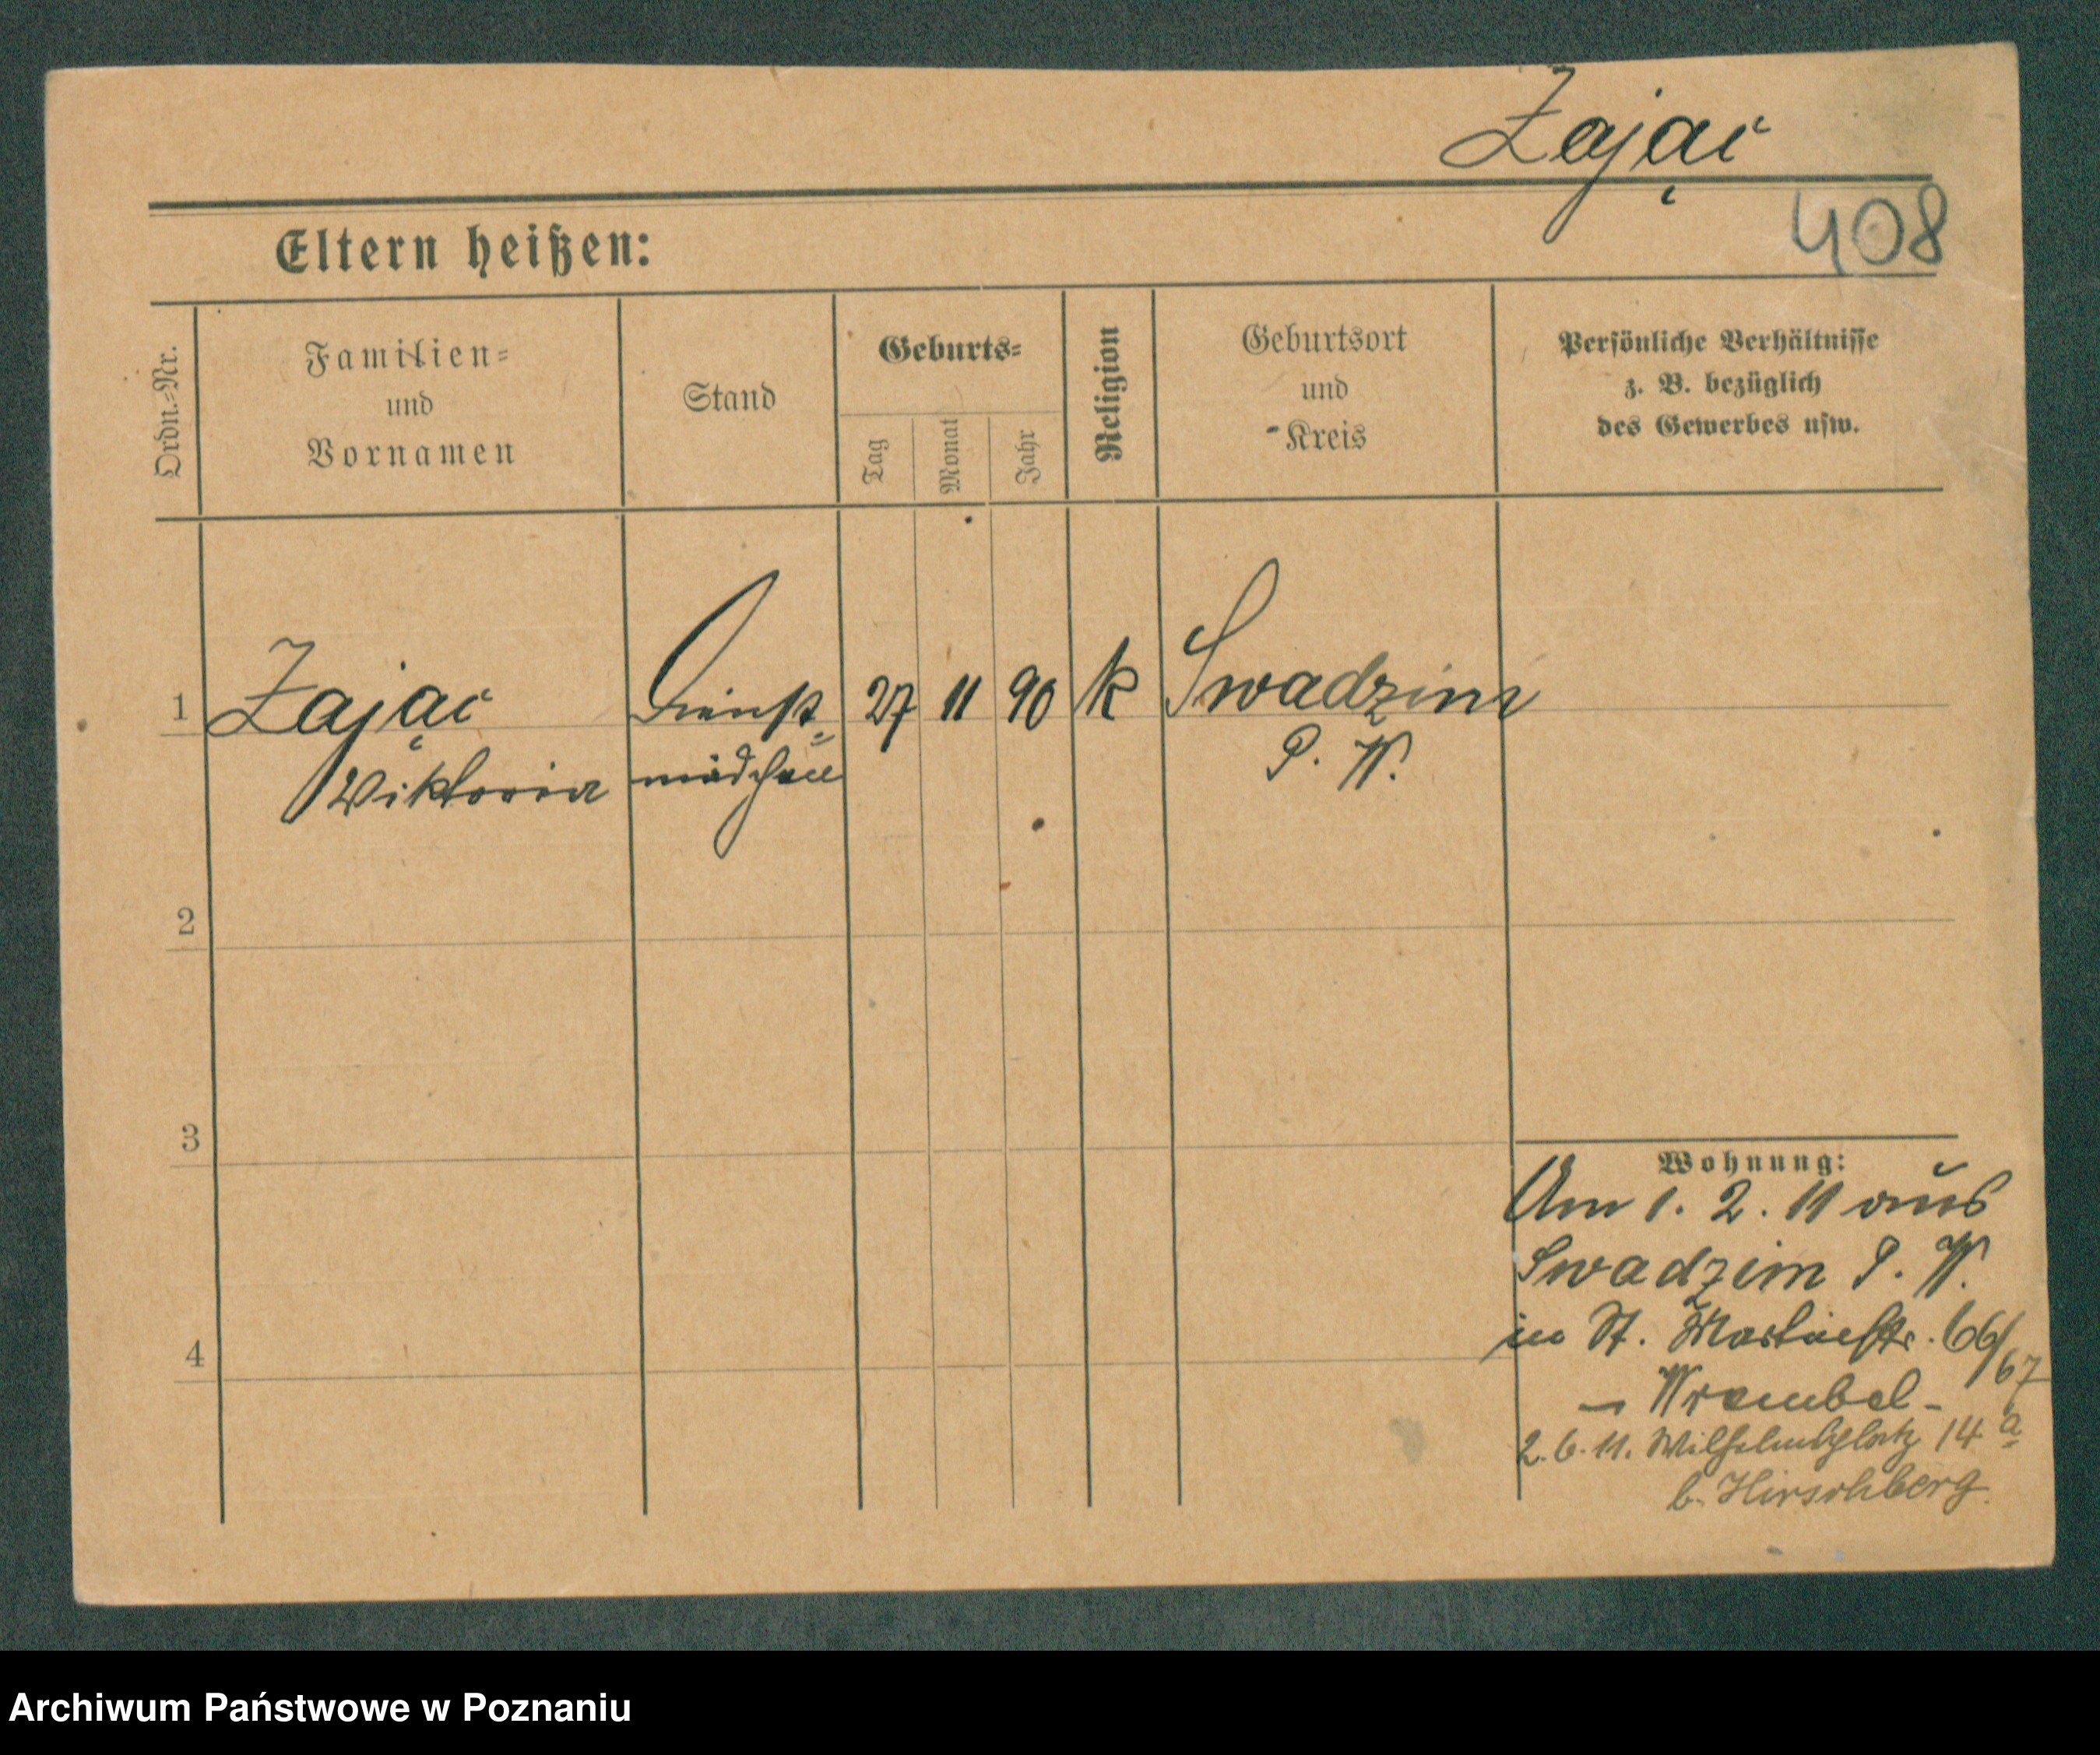 Zając
408
Eltern heißen:
Ordn.-Nr.
Familien-
und
Vornamen
Stand
Geburts-
Tag
Monat
Jahr
Religion
Geburtsort
und
Kreis
Persönliche Verhältnisse
z. B. bezüglich
des Gewerbes usw.
1 Zając Dienst- 27 11 90 k Swadzim
Viktoria mädchen P. W.
2
3
4
Wohnung:
Am 1. 2. 11 aus
Swadzim P. W.
in St. Martinstr. 66/67
– Wrembel –
2. 6. 11. Wilhelmsplatz 14 a
b. Hirschberg.
Archiwum Państwowe w Poznaniu